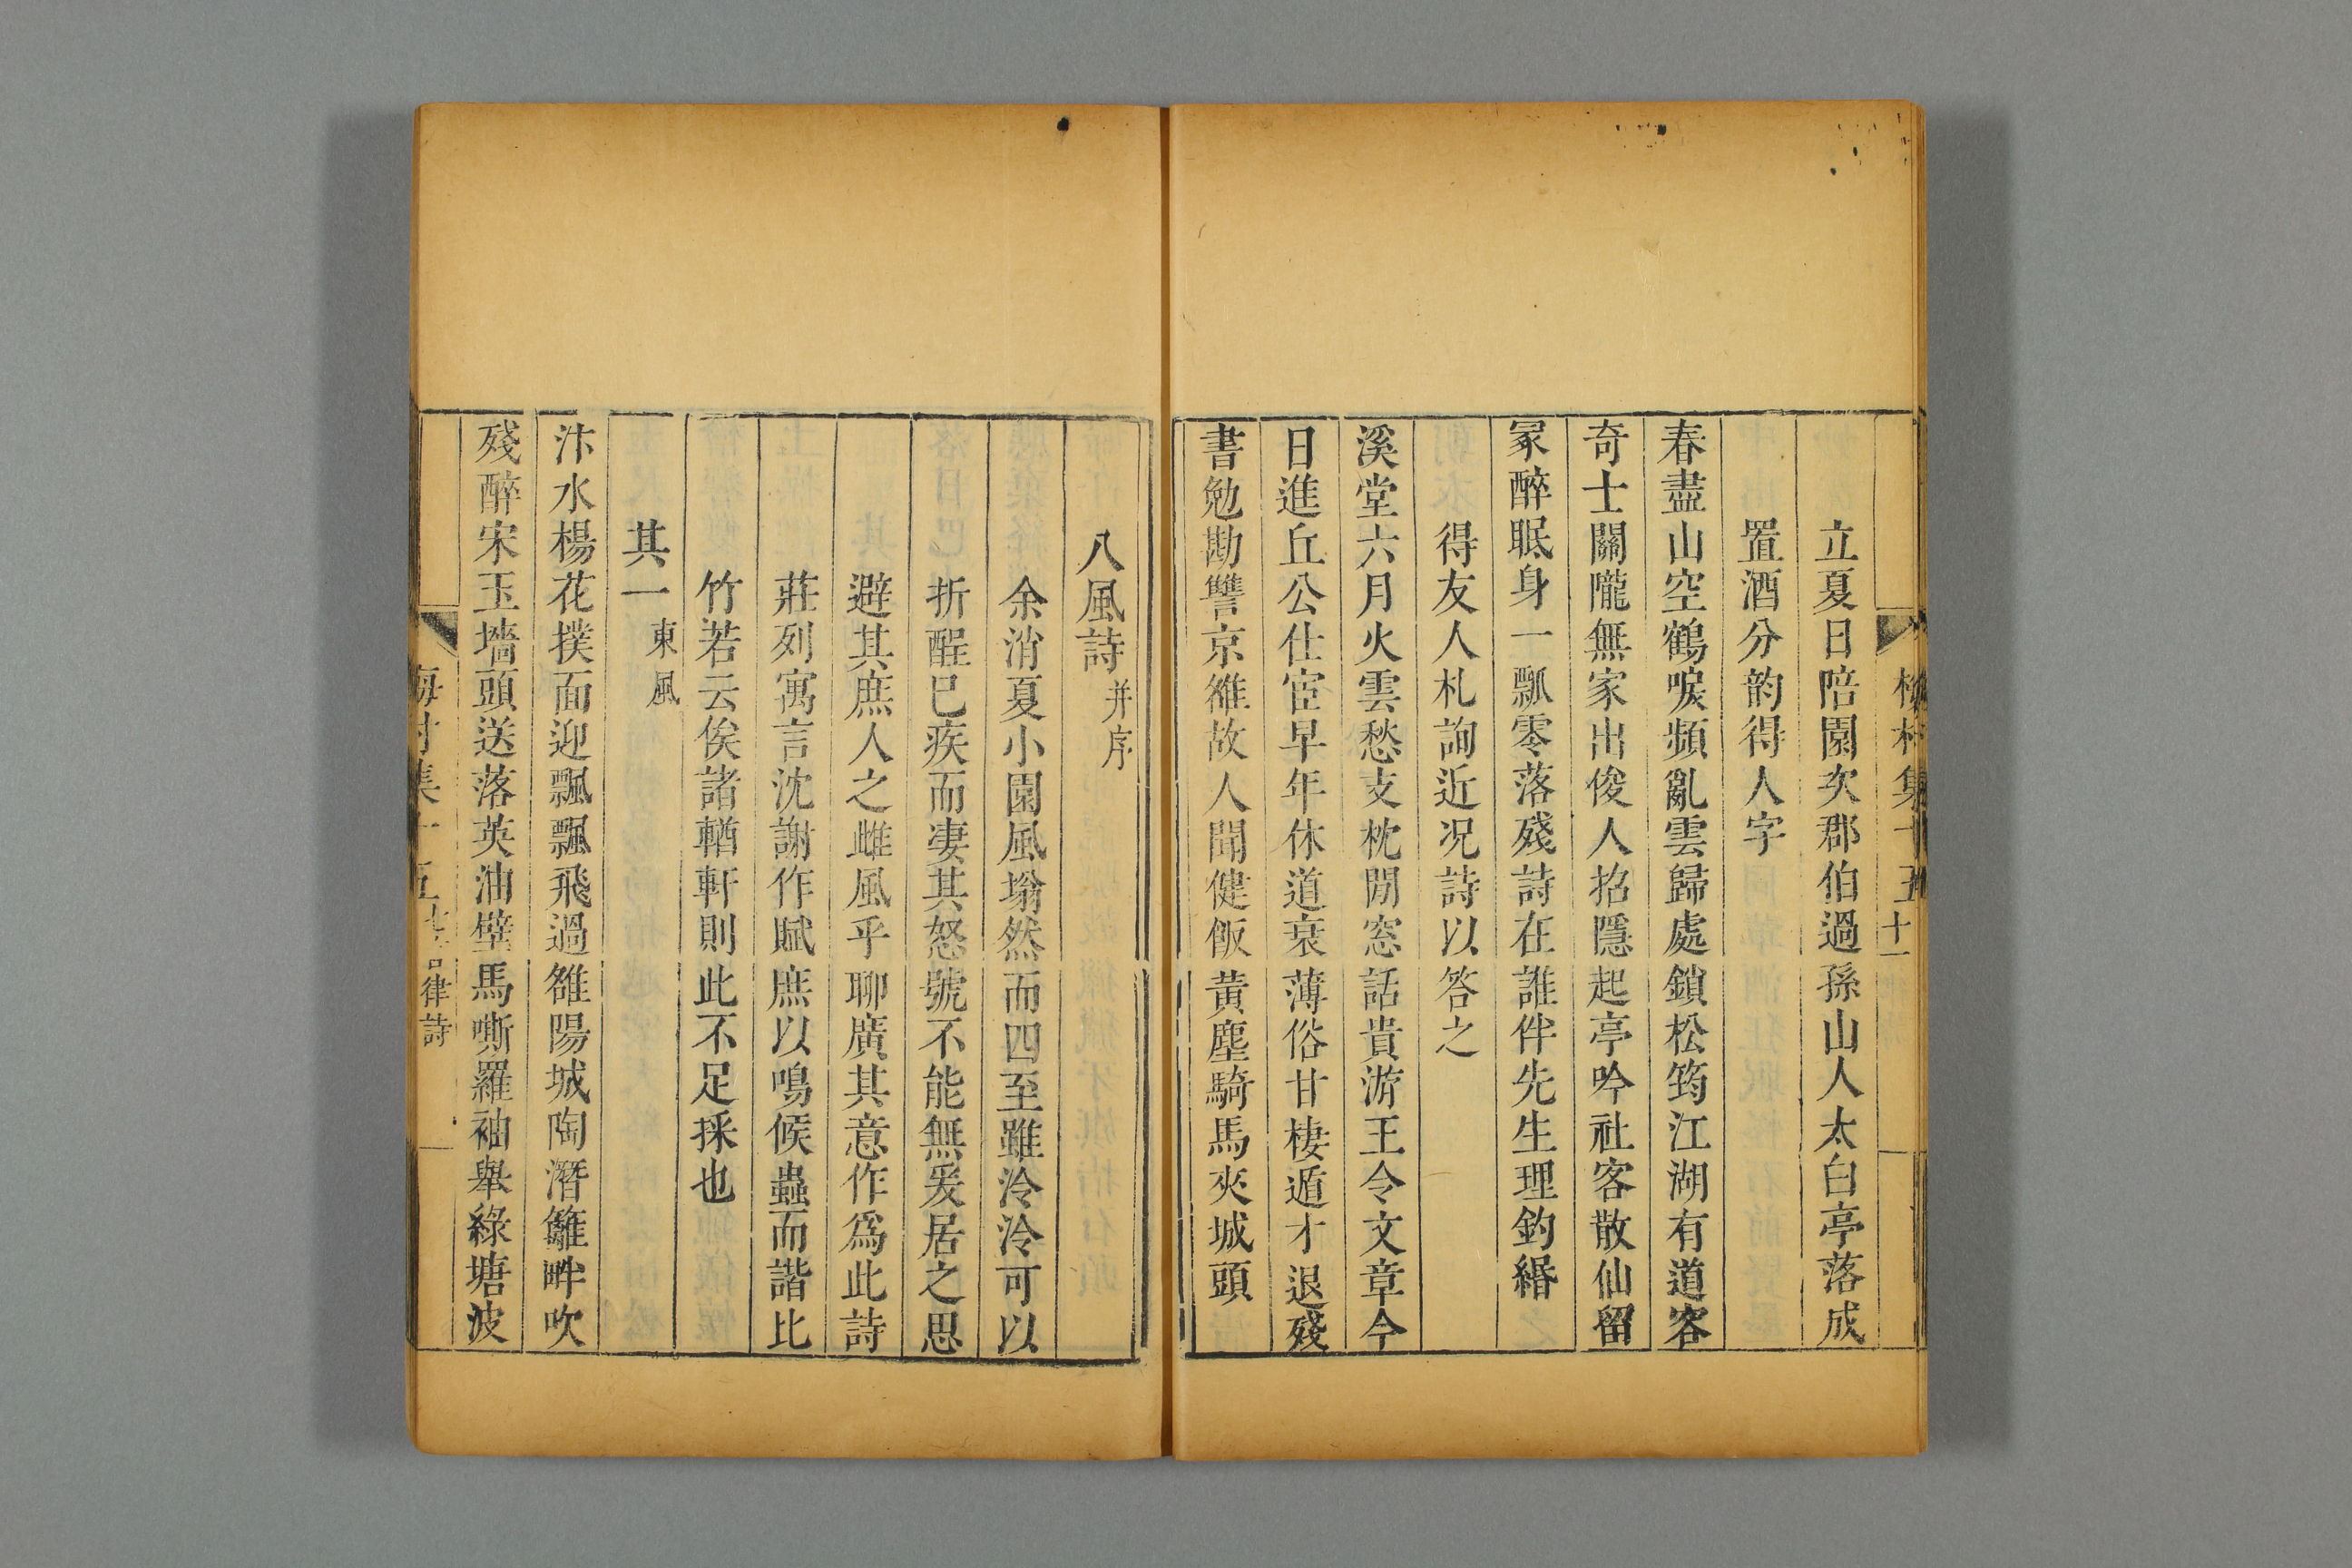 梅村集十五 十一
立夏日陪園次郡伯過孫山人太白亭落成
置酒分韵得人字
春盡山空鶴唳頻亂雲歸處鎖松筠江湖有道容
奇士關隴無家出俊人招隱起亭吟社客散仙留
冢醉眠身一瓢零落殘詩在誰伴先生理釣緡
得友人札詢近况詩以答之
溪堂六月火雲愁支枕閒窓話貴游王令文章今
日進丘公仕宦早年休道衰薄俗甘棲遁才退殘
書勉勘讐京雒故人聞健飯黃塵騎馬夾城頭
八風詩并序
余消夏小園風塕然而四至雖泠泠可以
折酲已疾而凄其怒號不能無爰居之思
避其庶人之雌風乎聊廣其意作爲此詩
莊列寓言沈謝作賦庶以鳴候蟲而諧比
竹若云俟諸輶軒則此不足採也
其一東風
汴水楊花撲面迎飄飄飛過雒陽城陶潛籬畔吹
殘醉宋玉墻頭送落英油壁馬嘶羅袖舉綠塘波
梅村集十五 七言律詩